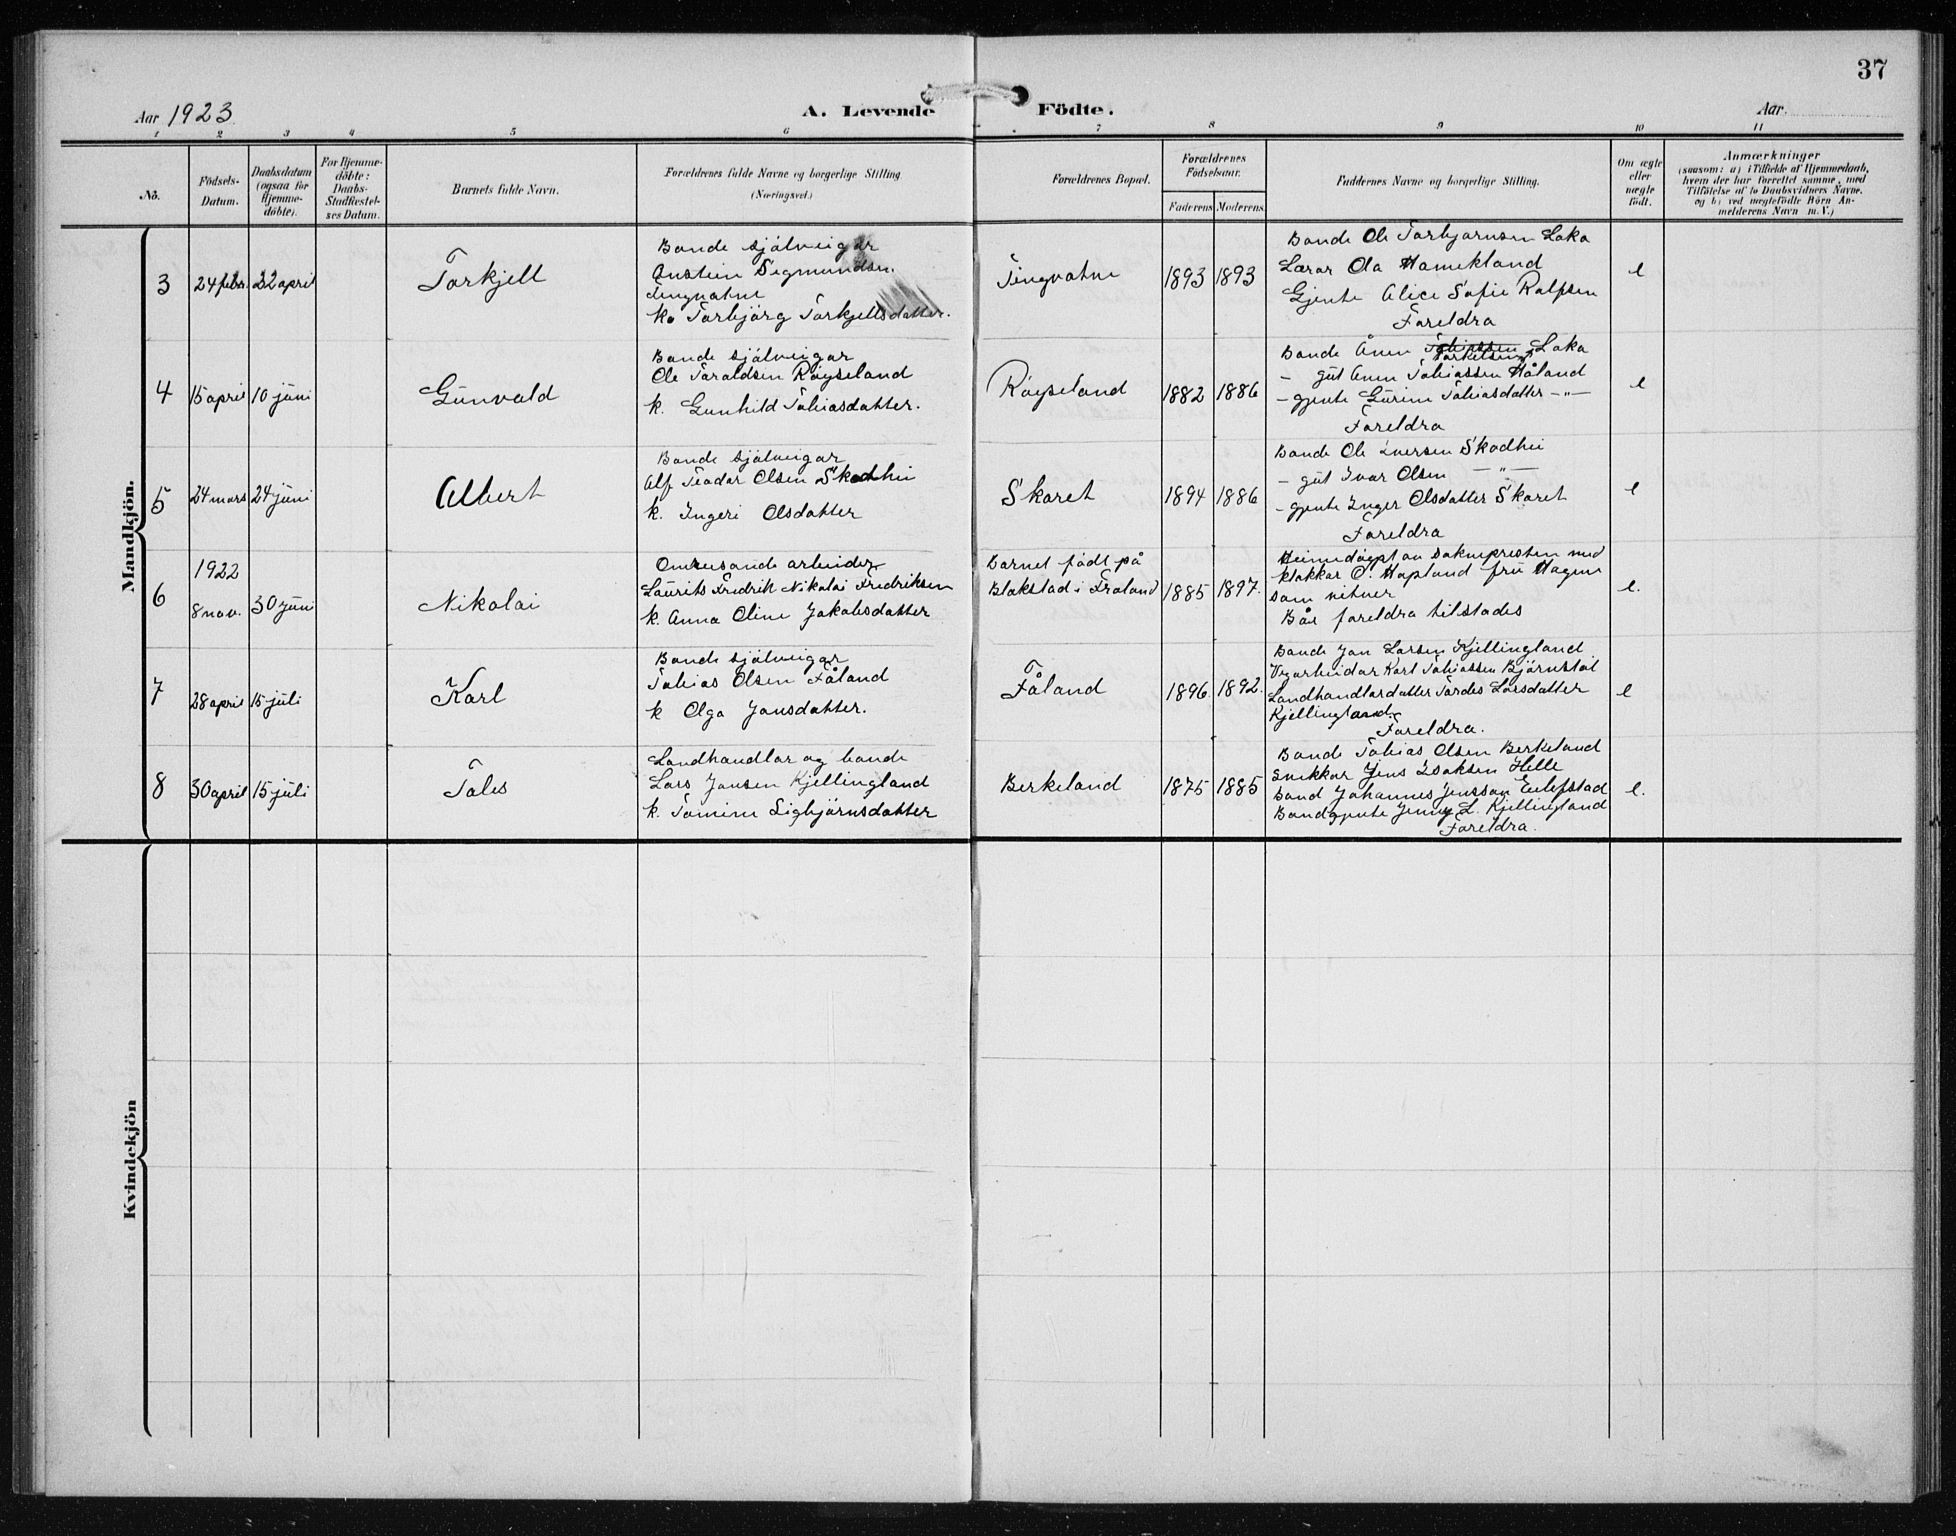 37
Aar 1923.
A. Levende Födte.
Aar
1 2 3 4 5 6 7 8 9 10 11
No.
Födsels-
Datum.
Daabsdatum
(ogsaa for
Hjemme-
döbte).
For Hjemme-
döbte:
Daabs-
Stadfæstel-
ses Datum.
Barnets fulde Navn.
Forældrenes fulde Navne og borgerlige Stilling
(Næringsvei.)
Forældrenes Bopæl.
Forældrenes
Födselsaar.
Faderens Moderens
Faddernes Navne og borgerlige Stilling.
Om ægte
eller
uægte
födt.
Anmærkninger
(saasom: a) i Tilfælde af Hjemmedaab,
hvem der har forrettet samme, med
Tilföielse af to Daabsvidners Navne.
og b) ved uægtefödte Börn An-
melderens Navn m. V.)
Mandkjön.
3
24 febr.
22 april
Torkjell
Bonde sjölveigar
Anstein Sigmundsen
Tingvatne
ko Torbjörg Torkjellsdatter.
Tingvatne
1893 1893
Bonde Ole Torbjornsen Loka
Lærar Ola Hamekland
Gjente Alice Sofie Rolfsen
Foreldra
e
4
15 april
10 juni
Gunvald
Bonde sjölveigar
Ole Taraldsen Röyseland
k. Gunhild Tobiasdatter.
Röyseland
1882 1886
Bonde Ånen Tobiassen Torkelsen Loka
- gut Anen Tobiassen Håland
- gjente Gurine Tobiasdatter -"-
Foreldra
e
5
24 mars
24 juni
Albert
Bonde sjölveigar
Alf Teodor Olsen Skodhei
k. Ingeri Olsdatter
Skaret
1894 1886
Bonde Ole Iversen Skodhei
- gut Ivar Olsen -"-
- gjente Inger Olsdatter Skaret
Foreldra
e
6
1922
8 nov.
30 juni
Nikolai
Omreisande arbeider
Laurits Fredrik Nikolai Fredriksen
k. Anna Oline Jakobsdatter
Barnet födt på
Blakstad i Froland
1885 1897.
Heimedöypt av soknepresten med
klokkar O. Hapland fru Hagen
som vitner
Båe foreldra tilstades
e.
7
28 april
15 juli
Karl
Bonde sjölveigar
Tobias Olsen Fåland
k Olga Jonsdatter.
Fåland
1896. 1892.
Bonde Jon Larsen Kjellingland
Vegarbeidar Karl Tobiassen Björnstöl
Landhandlardatter Tordis Larsdatter
Kjellingland.
Foreldra.
e
8
30 april
15 juli
Tales
Landhandlar og bonde
Lars Jonsen Kjellingland
k. Tomine Sigbjörnsdatter
Berkeland
1875 1885
Bonde Tobias Olsen Berkeland
Snikkar Jens Isaksen Helle
Bond Johannes Jensson Eilefstad
Bondgjente Jenny L. Kjellingland
Foreldra.
e.
Kvindekjön